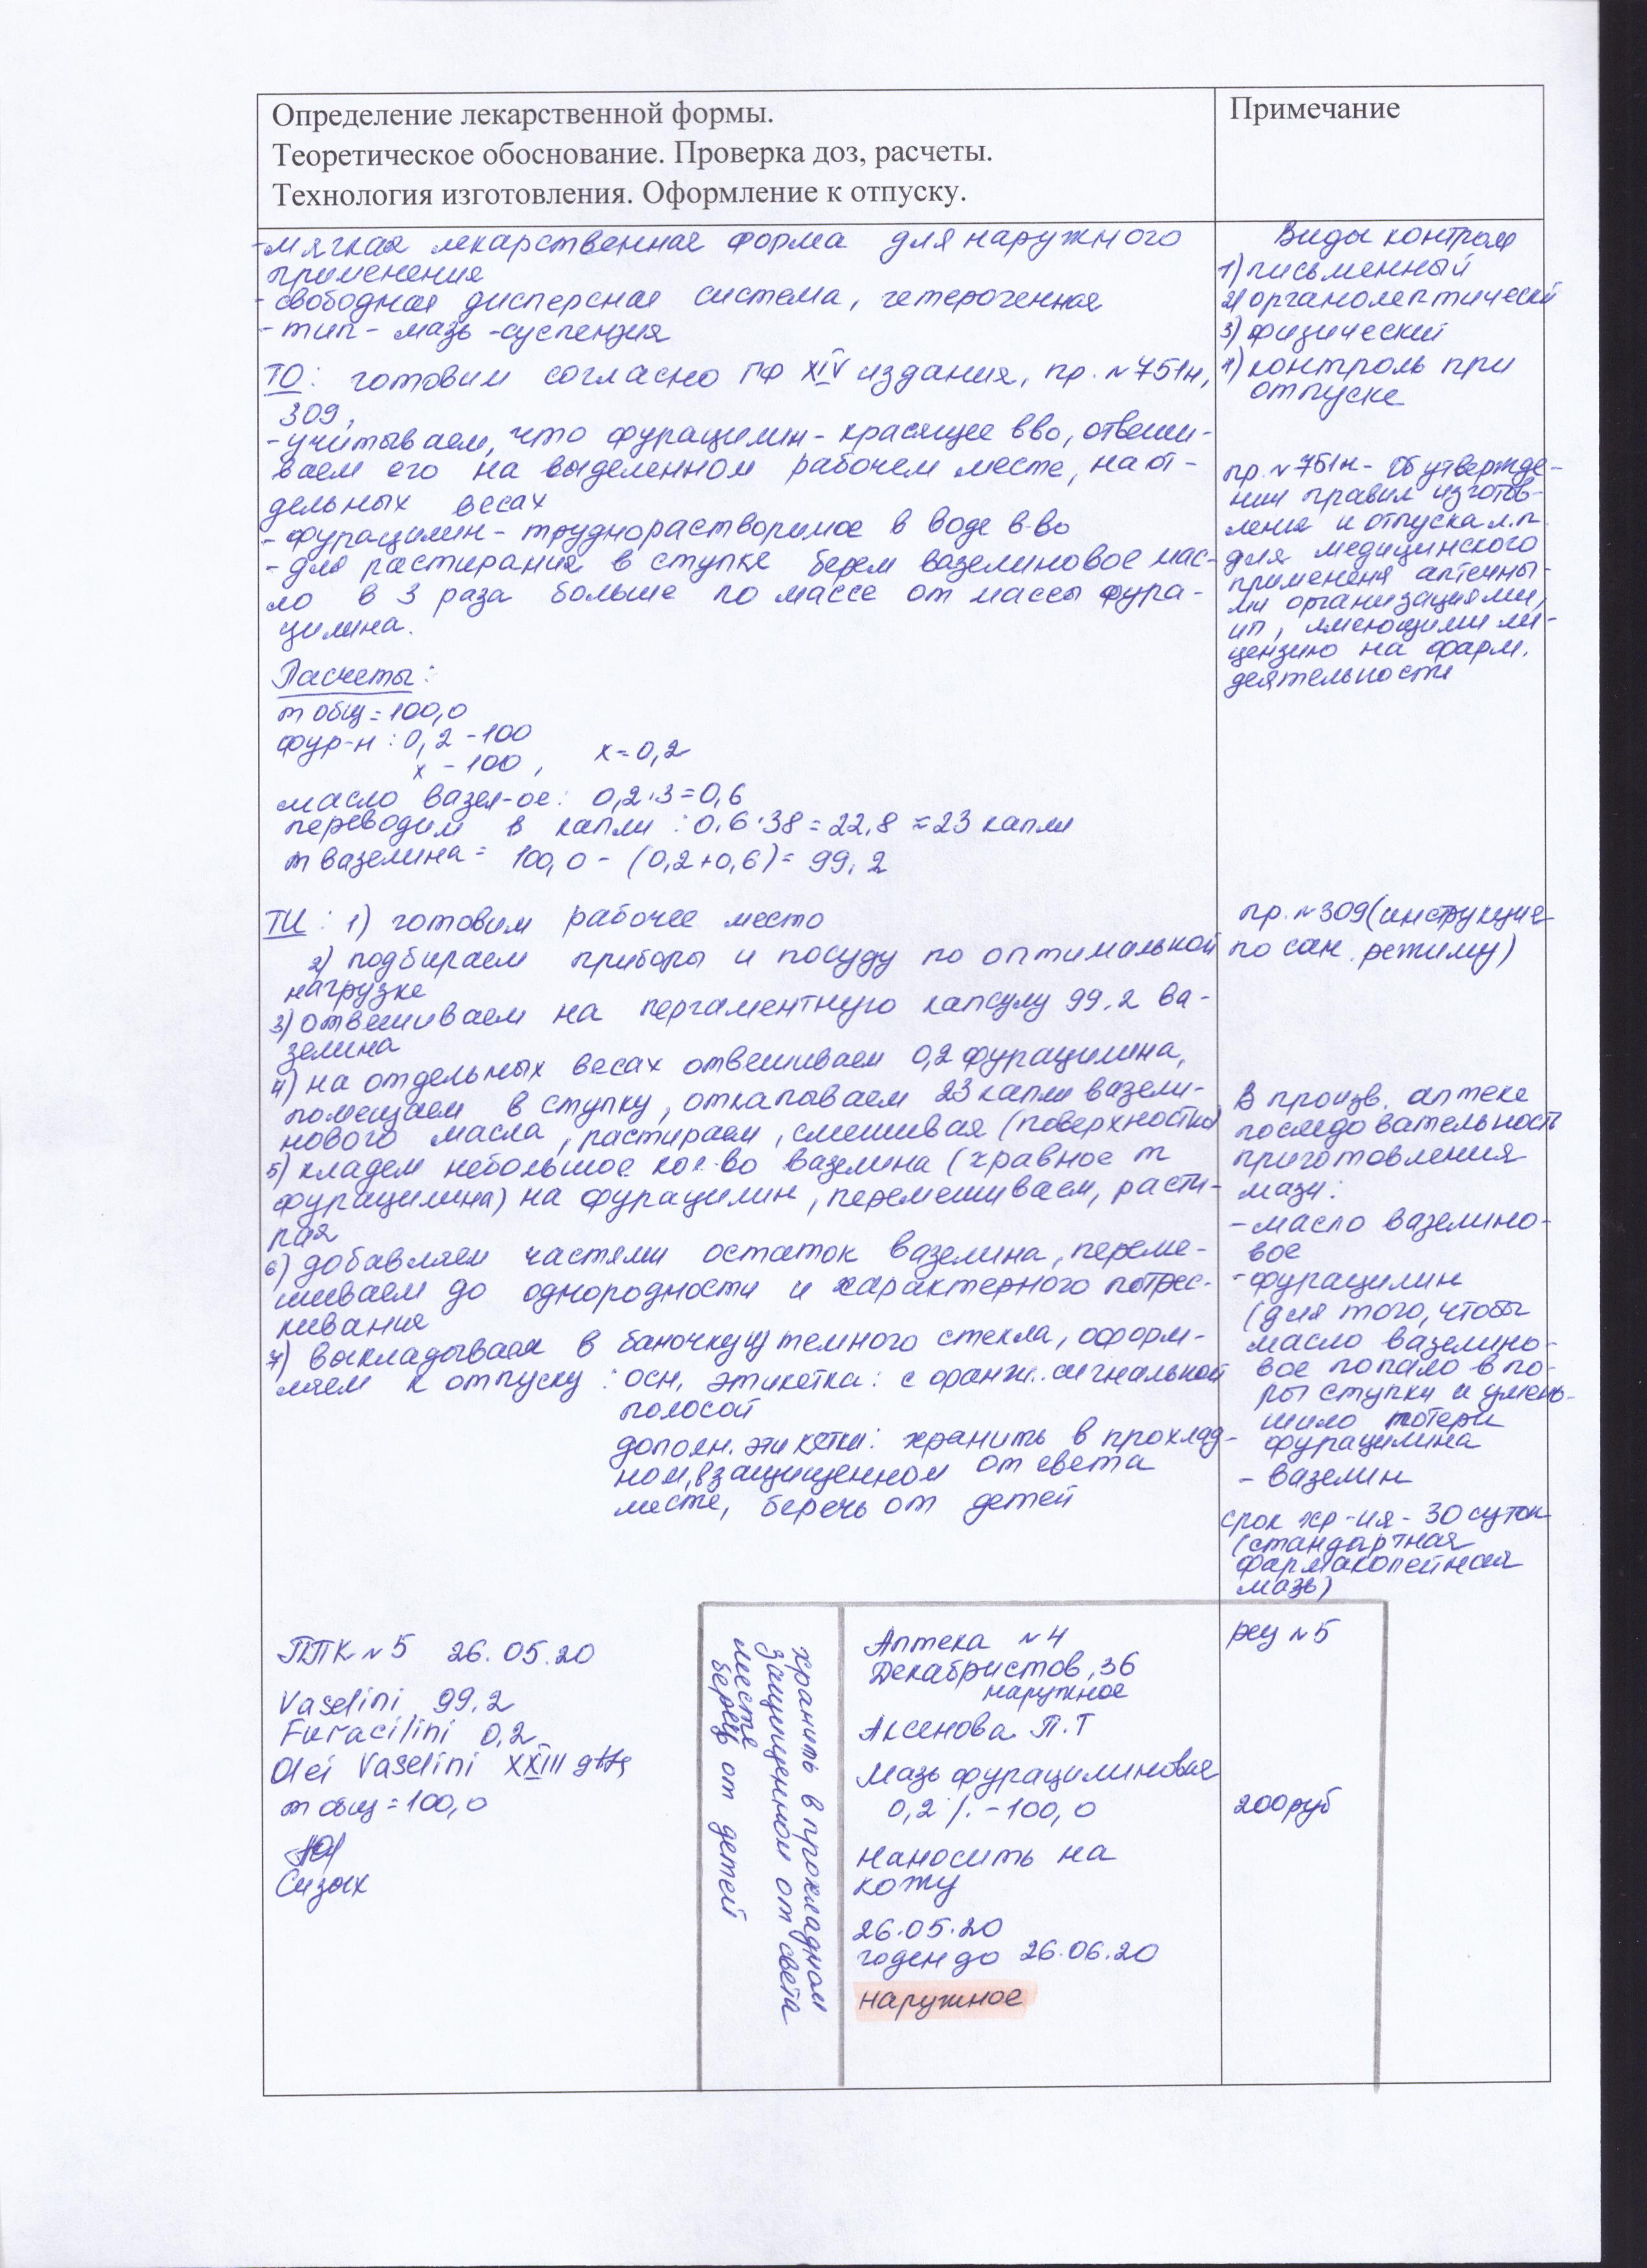 Определение лекарственной формы.
Теоретическое обоснование. Проверка доз, расчеты.
Технология изготовления. Оформление к отпуску.
- мягкая лекарственная форма для наружного
применения
- свободная дисперсная система, гетерогенная
- тип - мазь - суспензия
ТО: готовим согласно ГФ XIV издания, пр. №751н,
309,
- учитываем, что фурацилин - красящее в-во, отвеши-
ваем его на выделенном рабочем месте, на от-
дельных весах
- фурацилин - труднорастворимое в воде в-во
- для растирания в ступке берем вазелиновое мас-
ло в 3 раза больше по массе от массы фура-
цилина.
Расчеты:
m общ = 100,0
фур-н: 0,2 - 100
x - 100, x = 0,2
масло вазел-ое: 0,2·3=0,6
переводим в капли: 0,6·38 = 22,8 ≈ 23 капли
m вазелина = 100,0 - (0,2+0,6) = 99,2
ТИ: 1) готовим рабочее место
2) подбираем приборы и посуду по оптимальной
нагрузке
3) отвешиваем на пергаментную капсулу 99,2 ва-
зелина
4) на отдельных весах отвешиваем 0,2 фурацилина,
помещаем в ступку, откапываем 23 капли вазели-
нового масла, растираем, смешивая (поверхностно)
5) кладем небольшое кол-во вазелина (≈равное m
фурацилина) на фурацилин, перемешиваем, расти-
рая
6) добавляем частями остаток вазелина, переме-
шиваем до однородности и характерного потрес-
кивания
7) выкладываем в баночку из темного стекла, оформ-
ляем к отпуску: осн. этикетка: с оранж. сигнальной
полосой
дополн. этикетки: хранить в прохлад-
ном, в защищенном от света
месте, беречь от детей
ППК №5 26.05.20
Vaselini 99,2
Furacilini 0,2
Olei Vaselini XXIII gtts
m общ = 100,0
Сизых
Примечание
Виды контроля
1) письменный
2) органолептический
3) физический
4) контроль при
отпуске
пр. №751н - Об утвержде-
нии правил изготов-
ления и отпуска л.п.
для медицинского
применения аптечны-
ми организациями,
ип, имеющими ли-
цензию на фарм.
деятельности
пр. №309 (инструкция
по сан. режиму)
В произв. аптеке
последовательность
приготовления
мази:
- масло вазелино-
вое
- фурацилин
(для того, чтобы
масло вазелино-
вое попало в по-
ры ступки и умень-
шило потери
фурацилина
- вазелин
срок хр-ия - 30 суток
(стандартная
фармакопейная
мазь)
хранить в прохладном
защищенном от света
месте
беречь от детей
Аптека №4
Декабристов, 36
наружное
рец №5
Аксенова П.Т
Мазь фурацилиновая
0,2% - 100,0
200 руб
Наносить на
кожу
26.05.20
годен до 26.06.20
наружное